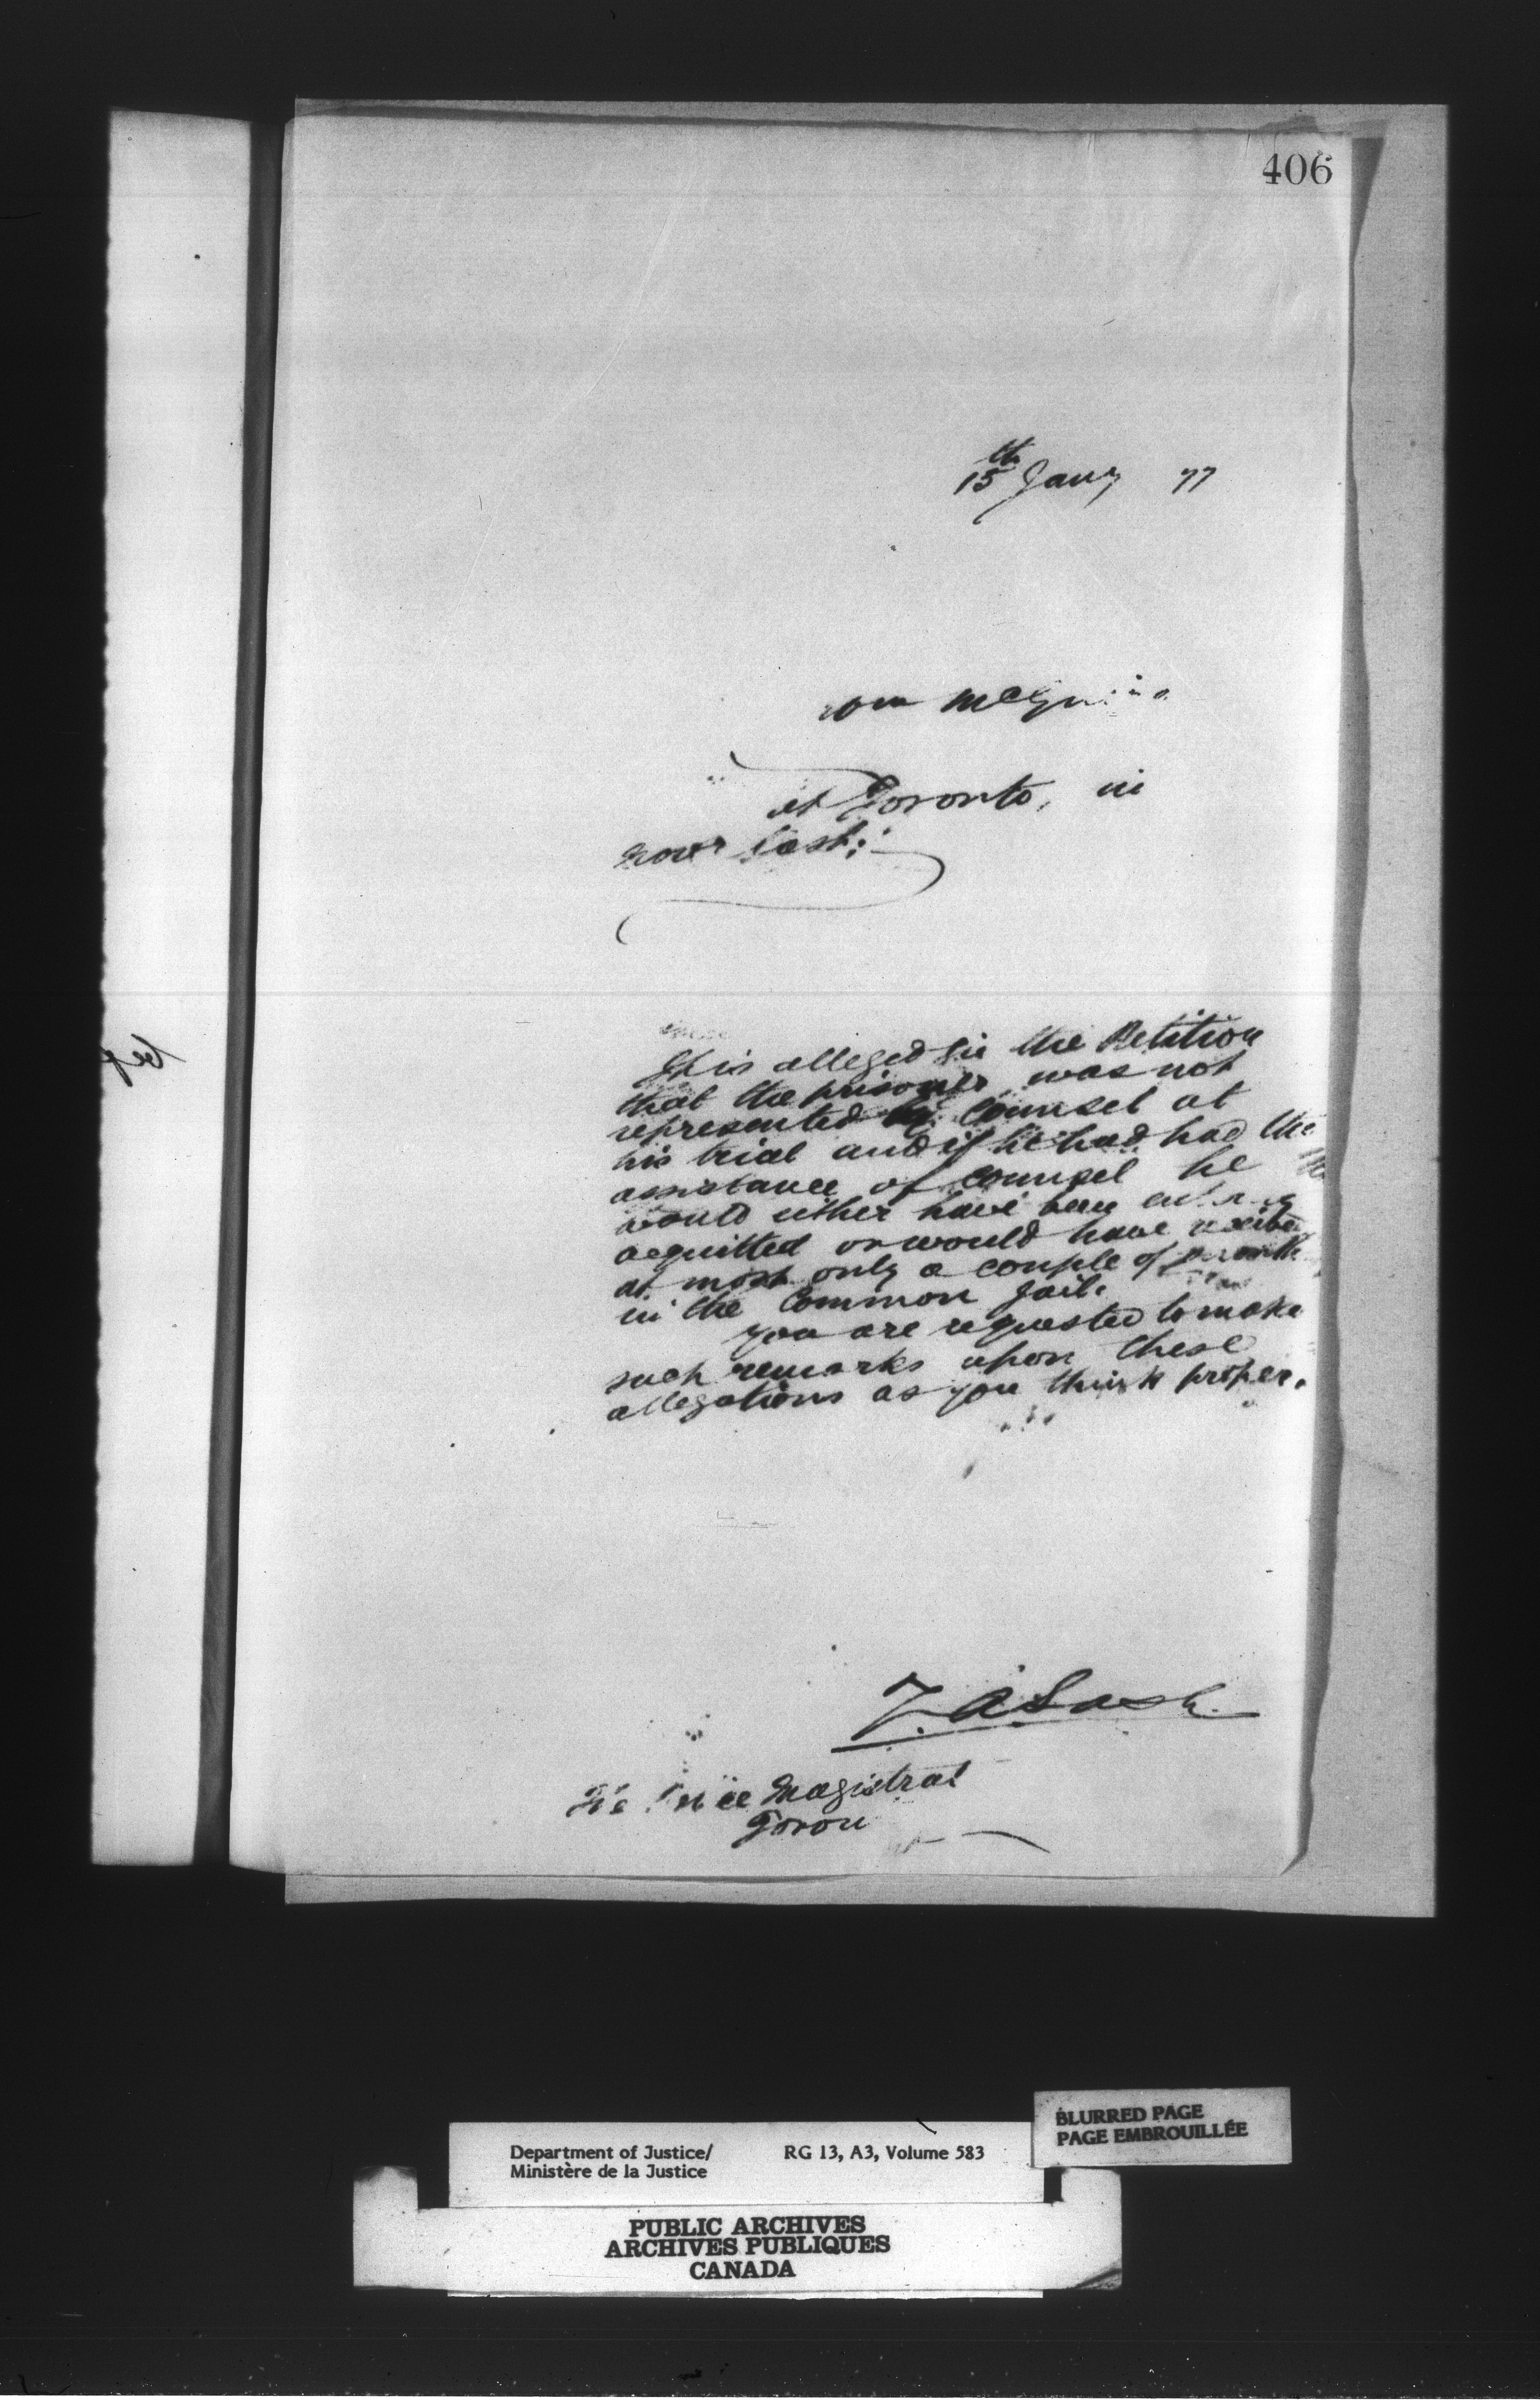 406
15th Jany 77
Wm
at Toronto, in
Novr last:
It is alleged in the Petition
that the prisoner was not
represented by Counsel at
his trial and if he had had the
assistance of Counsel he
would either have been
acquitted or would have
at most only a couple of
in the Common Jail.
You are requested to make
such remarks upon these
allegations as you think proper.
Z. A. Lash
Magistrat
Toron
BLURRED PAGE
PAGE EMBROUILLÉE
Department of Justice/ RG 13, A3, Volume 583
Ministère de la Justice
PUBLIC ARCHIVES
ARCHIVES PUBLIQUES
CANADA